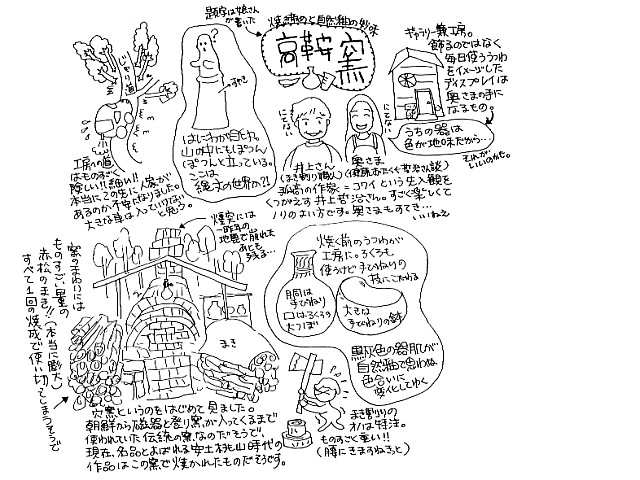 題字は娘さん
が書いた
焼き締めと自然釉の妙味
高鞍窯
ギャラリー兼工房。
飾るのではなく
毎日使ううつわ
をイメージした
ディスプレイは
奥さまの手に
なるもの。
うちの器は
色が地味だから…
それが
いいのかた。
じゃり道
すやき
はにわが目印。
山の中にもぽつん
ぽつんと立っている。
ここは
縄文の世界か?!
にてない
にてない
井上さん
(まき割り職人)
奥さま
孤高の作家=コワイという先入観を
くつがえす井上哲治さん。すごく楽しくて
ノリのよい方です。奥さまもすてき…
いいねえ
工房への道
はものすごく
険しい!!細い!!
本当にこの先に人家が
あるのか不安になりました。
大きな車は入っていけない
と思う。
煙突には
一昨年の
地震で崩れた
あとも
残る…
窯のまわりには
ものすごい量の
赤松のまき!!(本当に膨大)
すべて1回の焼成で使い切ってしまうそうで
まき
焼く前のうつわが
工房に。ろくろも
使うけど手びねりの
技にこだわる
胴は
手びねり
口はろくろの
大つぼ
大きな
手びねりの鉢
黒灰色の器肌が
自然釉で思わぬ
色合いに
変化してゆく
穴窯というのをはじめて見ました。
朝鮮から磁器と登り窯が入ってくるまで
使われていた伝統の窯なのだそうで、
現在、名品とよばれる安土桃山時代の
作品はこの窯で焼かれたものだそうです。
まき割りの
オノは特注。
ものすごく重い!!
(腰にきますねきっと)